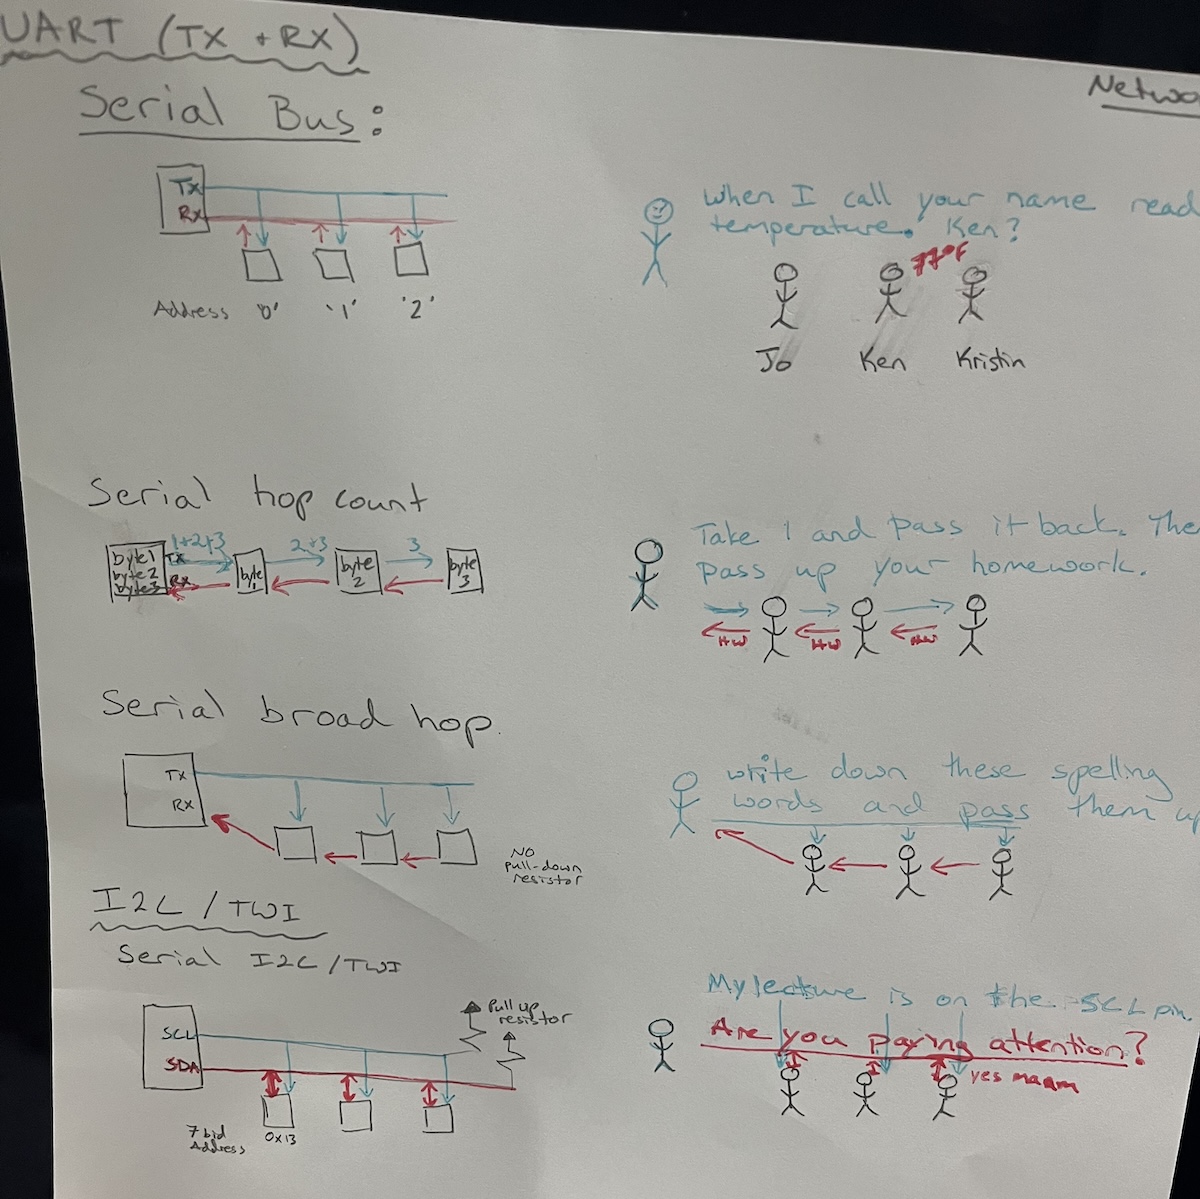 UART (TX + RX)
Netwo
Serial Bus:
Tx
Rx
Address '0' '1' '2'
when I call your name read
temperature. Ken?
77°F
Jo Ken Kristin
Serial hop count
byte1
byte2
byte3
TX
RX
1+2+3
2+3
3
byte
1
byte
2
byte
3
Take 1 and pass it back. The
pass up your homework.
HW HW HW
Serial broad hop.
TX
RX
NO
pull-down
resistor
write down these spelling
words and pass them up
I2C / TWI
Serial I2C / TWI
SCL
SDA
Pull up
resistor
7 bid
Address
0x13
My lecture is on the SCL pin.
Are you paying attention?
yes maam